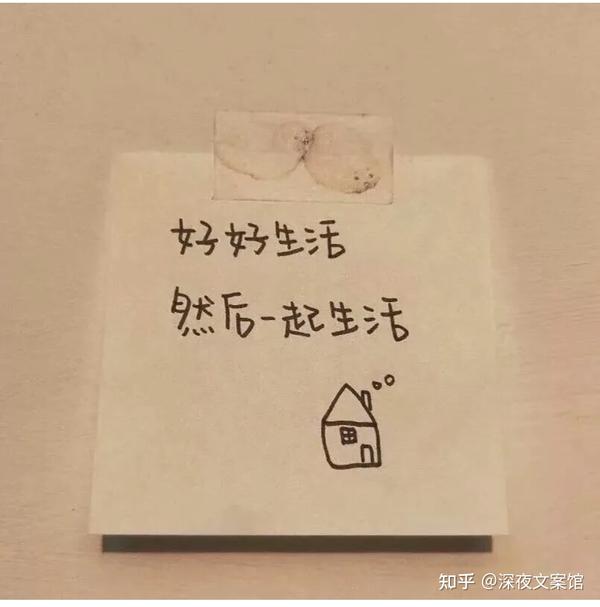 好好生活
然后一起生活
知乎 @深夜文案馆